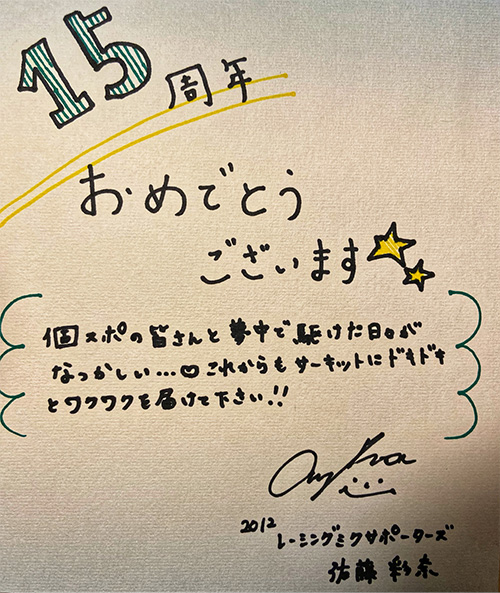 15周年
おめでとう
ございます
個スポの皆さんと夢中で駆けた日々が
なつかしい…♡これからもサーキットにドキドキ
とワクワクを届けて下さい!!
2012 レーシングミクサポーターズ
佐藤彩奈